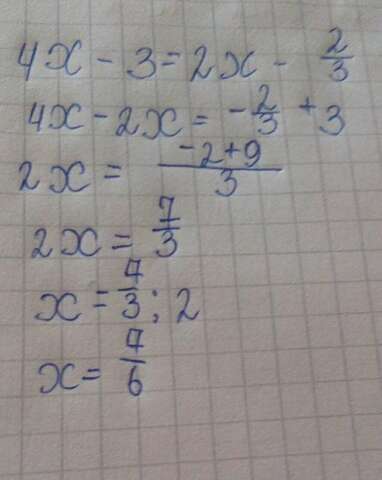 4x - 3 = 2x - 2/3
4x - 2x = -2/3 + 3
2x = (-2+9)/3
2x = 7/3
x = 7/3 : 2
x = 7/6